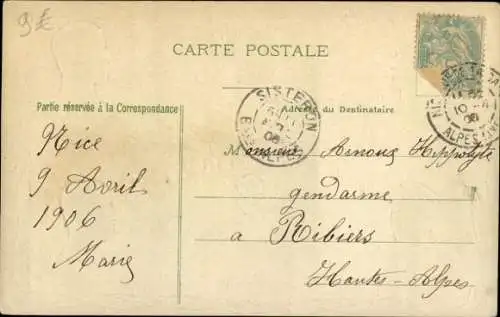 9 €
CARTE POSTALE
Partie réservée à la Correspondance
Adresse du Destinataire
SISTERON
06
BSES ALPES
10
06
ALPES
Nice
9 Avril
1906
Marie
Monsieur Arnoux Hippolyte
gendarme
a Ribiers
Hautes-Alpes